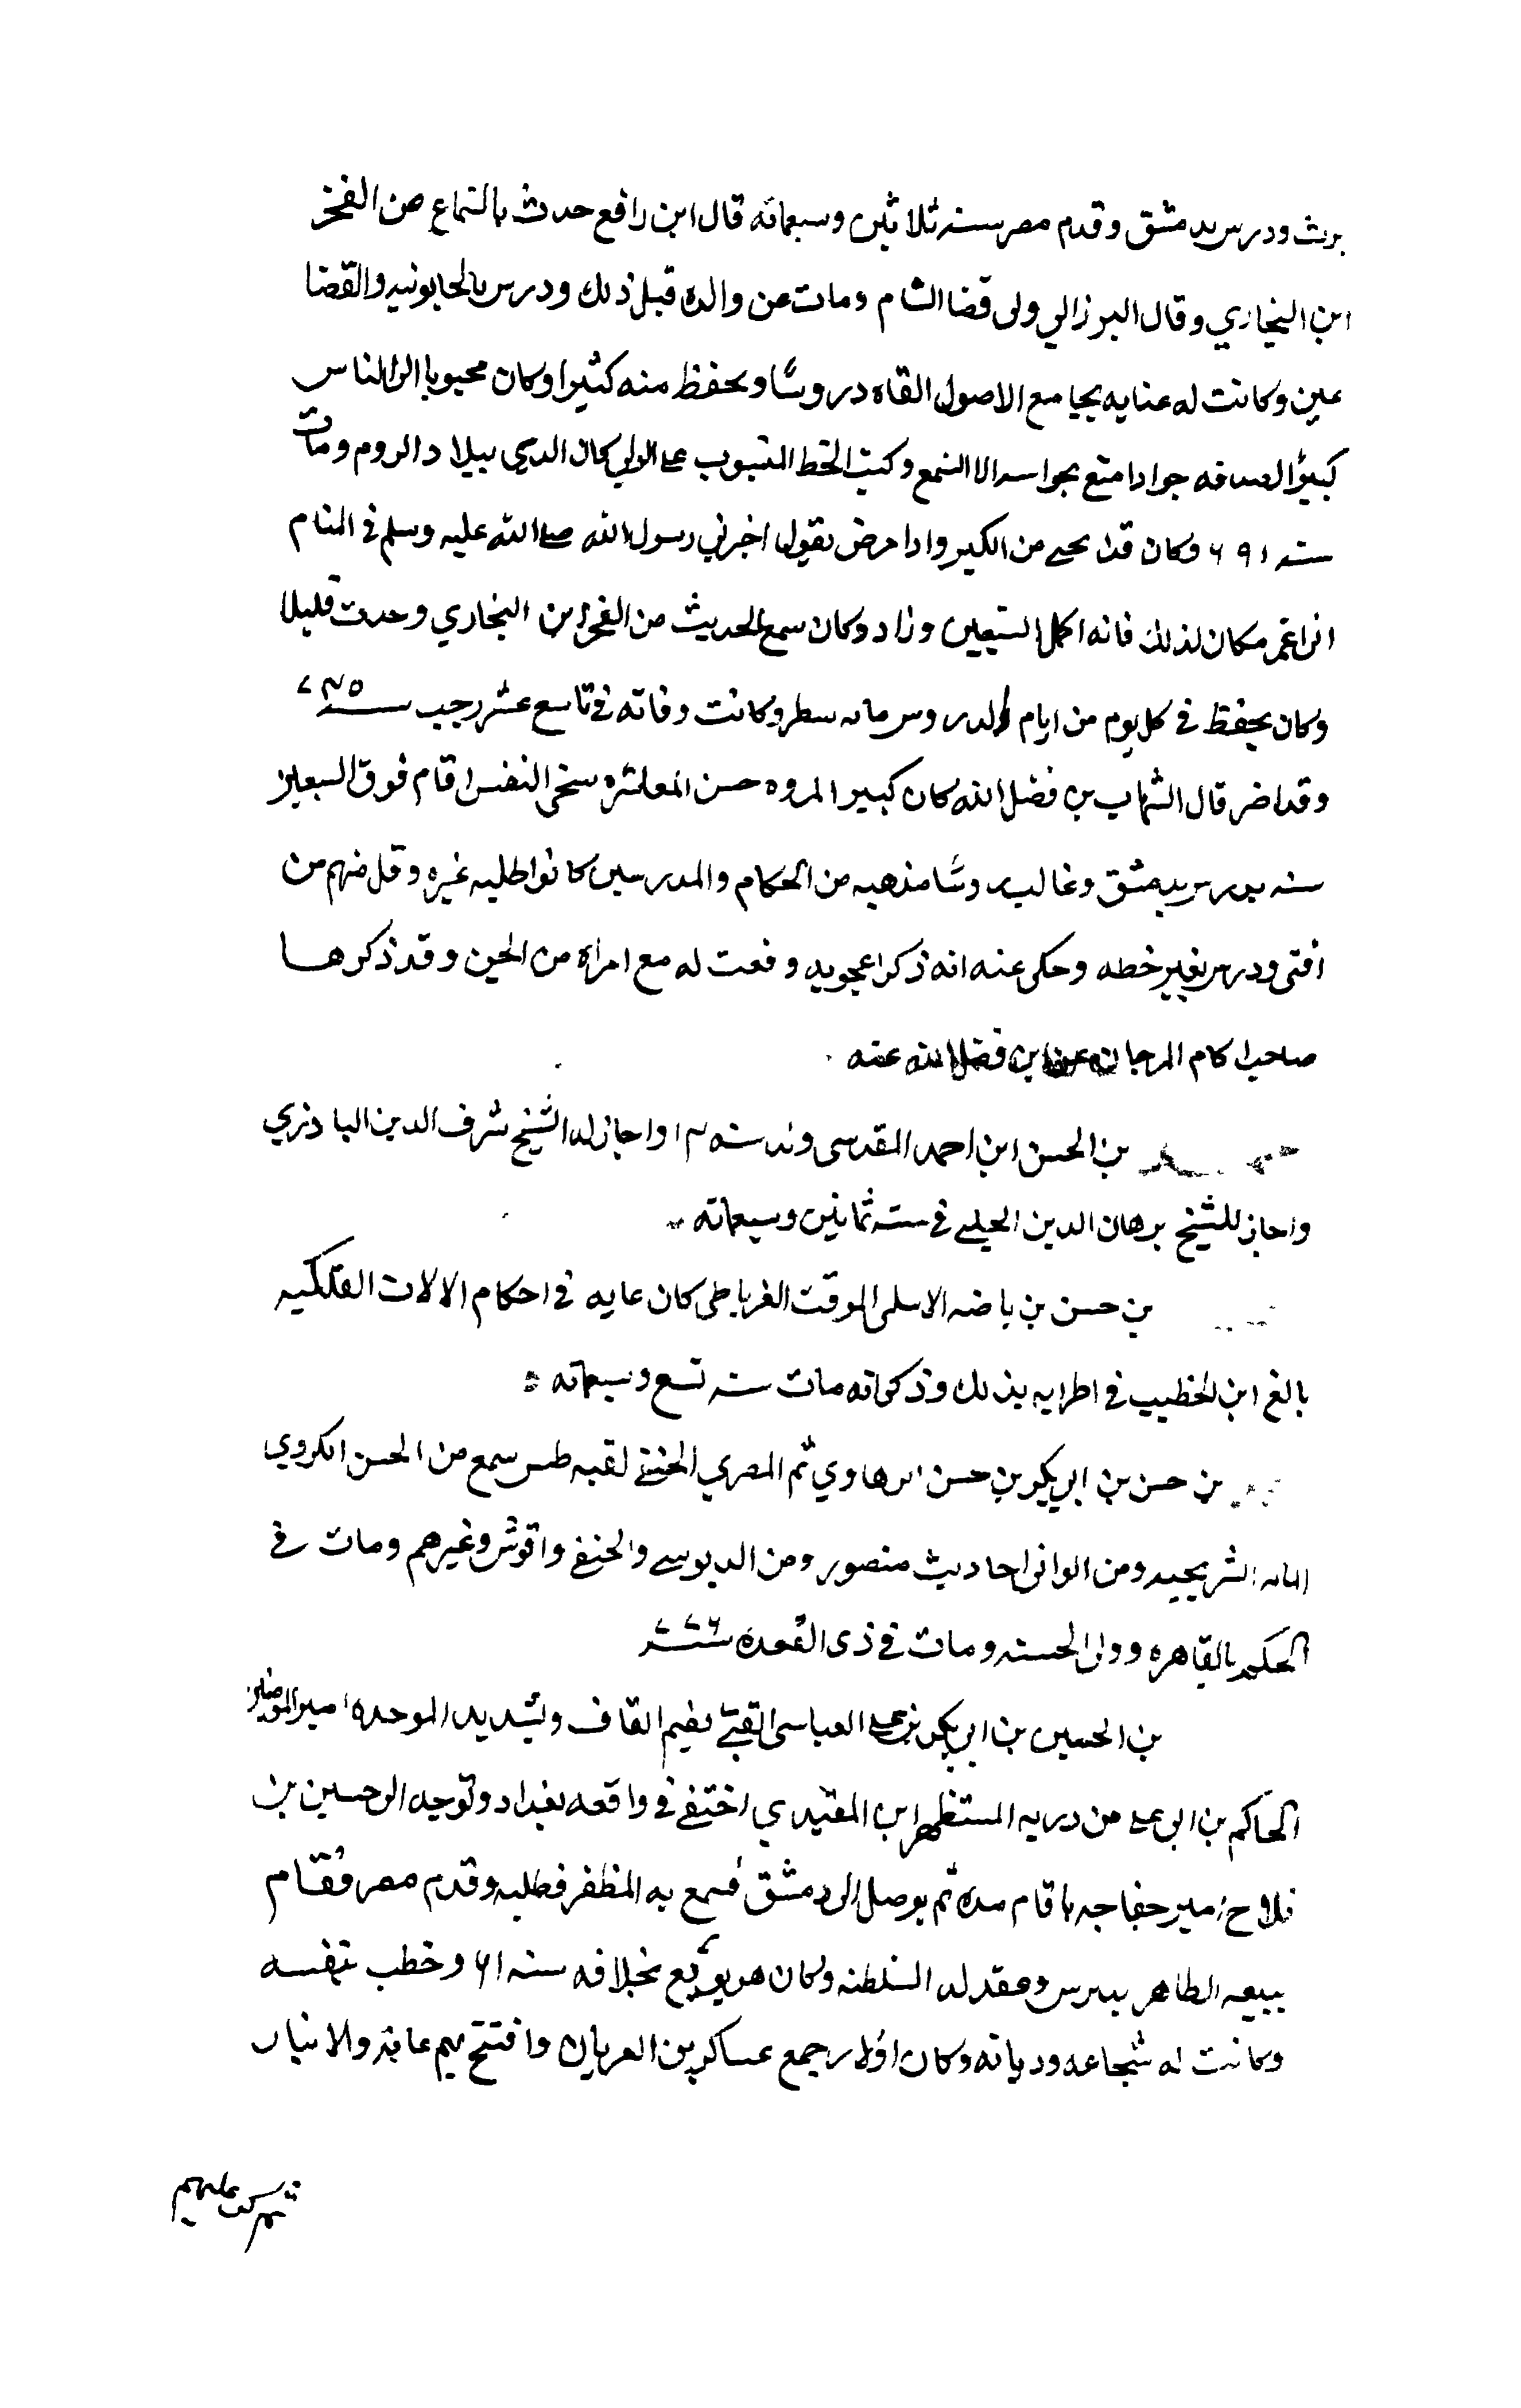 ودرس بدمشق وقدم مصر سنه ثلاثين وسبعمائه قال ابن رافع حدث بالسماع من الفخر
ابن البخاري وقال البرزالي ولى قضا الشام ومات عن والده قبل ذلك ودرس بالخاتونيه والقضا
عين وكانت له عنايه بجامع الاصول القاه دروسًا وحفظ منه كثيرا وكان محبوبا الى الناس
كبير الصدقه جوادا متع بحواسه الا السمع وكتب الخط المنسوب على الولي كان الدي ببلاد الروم ومات
سنه ٦٩١ وكان قد انحنى من الكبر واذا مرض يقول اخبرني رسول الله صلى الله عليه وسلم في المنام
اني اعمر فكان لذلك فانه اكمل التسعين وزاد وكان سمع الحديث من الفخر ابن البخاري وحدث قليلا
وكان يحفظ في كل يوم من ايام الدروس مايه سطر وكانت وفاته في تاسع عشر رجب سنه ٧٤٥
وقد اضر قال الشهاب بن فضل الله كان كبير المروه حسن المعاشره سخى النفس اقام فوق السبعين
سنه يدرس بدمشق وغالب روسًا مذهبه من الحكام والمدرسين كانوا طلبه غيره وقل منهم من
افتى ودرس بغير خطه وحكى عنه انه ذكر اعجوبه وقعت له مع امراه من الجن وقد ذكرها
صاحب اكام المرجان عن ابن فضل الله عنه
بن الحسن ابن احمد المقدسى ولد سنه واجاز له الشيخ شرف الدين البارزي
واجاز للشيخ برهان الدين الحلبي في سنه ثمانين وسبعمائه
بن حسن بن باصه الاسلمى الموقت الغرناطى كان غايه في احكام الالات الفلكيه
بالغ ابن الخطيب في اطرايه بذلك وذكر انه مات سنه تسع وسبعمائه
بن حسن بن ابي بكر بن حسن الرهاوي ثم المصري الحنفي لقبه طس سمع من الحسن الكردي
ومن الواني احاديث منصور ومن الدبوسي والختني واقوش وغيرهم وناب في
الحكم بالقاهره وولى الحسبه ومات في ذى القعده سنه ٧٧٦
بن الحسين بن ابي بكر بن على العباسى القبي بضم القاف وتشديد الموحده امير المومنين
الحاكم بن ابي على من ذريه المستظهر ابن المقتدي اختفى في واقعه بغداد وتوجه الى حسين بن
فلاح امير خفاجه فاقام مده ثم توصل الى دمشق فسمع به المظفر فطلبه وقدم مصر فقام
ببيعه الظاهر بيبرس وعقد له السلطنه وكان هو بويع بخلافه سنه ٦٦١ وخطب بنفسه
وكانت له شجاعه وديانه وكان اولا جمع عساكر من العربان وافتتح بهم عانه والانبار
ثم كر عليهم